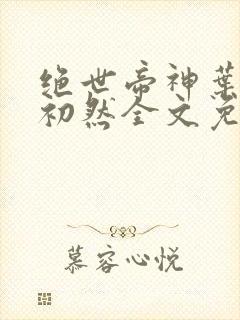 绝世帝神葉
初然全文免
慕容心悦